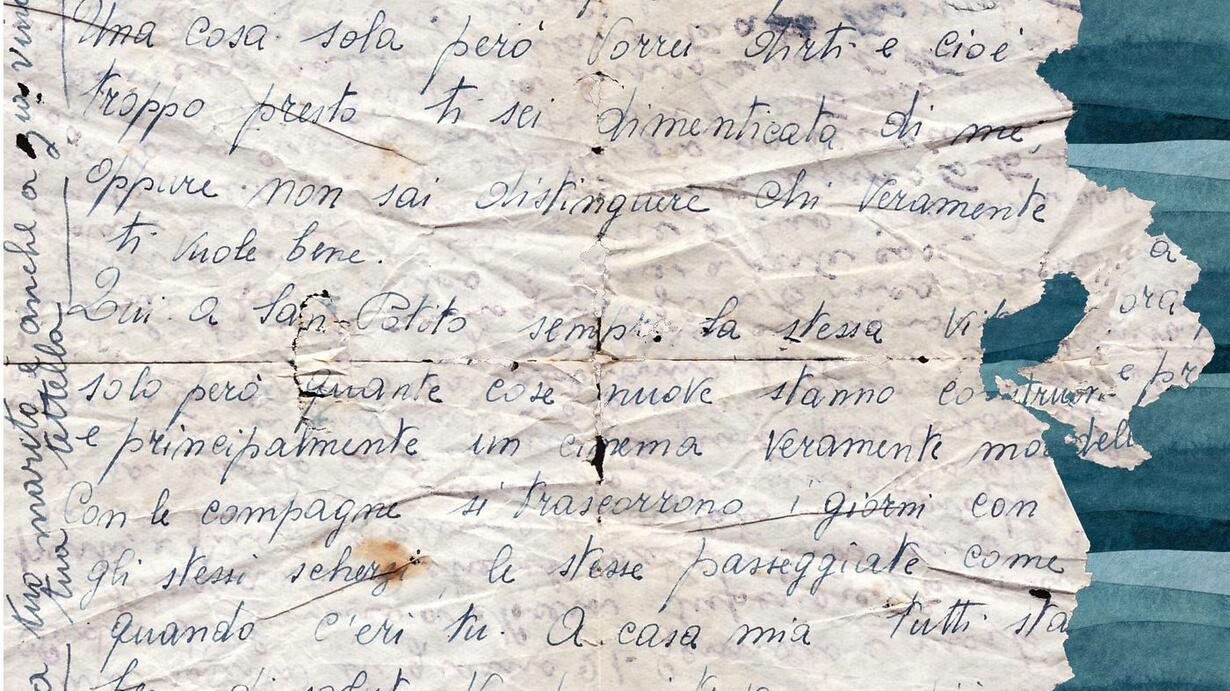 Una cosa sola però vorrei dirti e cioè
troppo presto ti sei dimenticata di me,
oppure non sai distinguere chi veramente
ti vuole bene.
Qui a San Potito sempre la stessa
solo però quante cose nuove stanno
e principalmente un cinema veramente
Con le compagne si trascorrono i giorni con
gli stessi scherzi, le stesse passeggiate come
quando c'eri tu. A casa mia tutti sta
a
ora
e pr
tuo marito anche a
tua